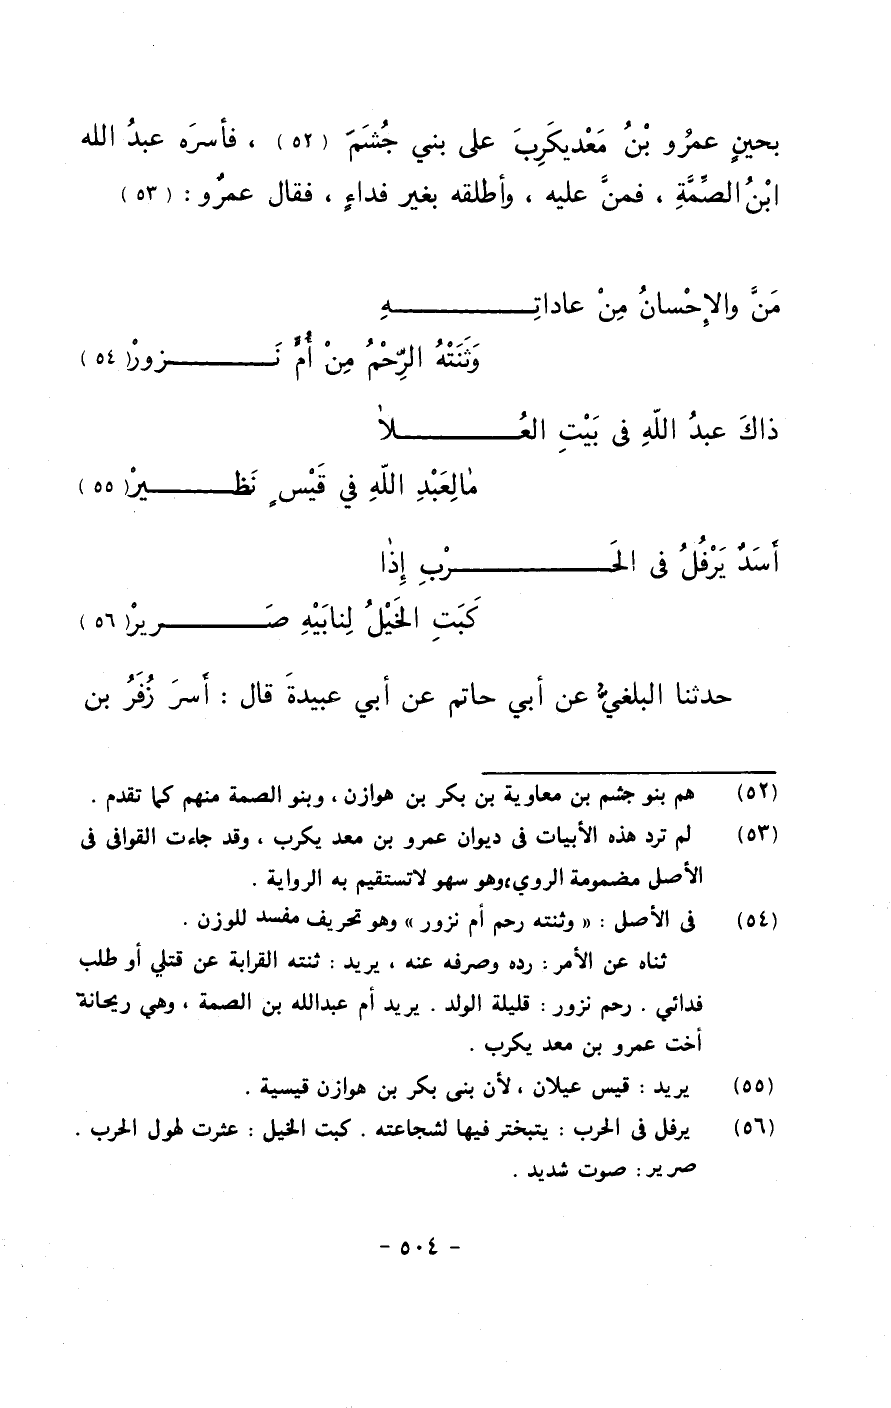 بحينٍ عمرُو بْنُ مَعْديكَرِبَ على بني جُشَمَ (٥٢) ، فأسرَه عبدُ الله
ابْنُ الصِّمَّةِ ، فمنَّ عليه ، وأطلقه بغير فداءٍ ، فقال عمرٌو : (٥٣)
مَنَّ والإِحْسانُ مِنْ عاداتِـــــــــهِ
وَثَنَتْهُ الرِّحْمُ مِنْ أُمٍّ نَـــــــــزورْ (٥٤)
ذاكَ عبدُ اللّهِ فى بَيْتِ العُـــــــــلا
مالِعَبْدِ اللّهِ في قَيْسٍ نَظـــــــــيرْ (٥٥)
أَسَدٌ يَرْفُلُ فى الحَـــــــــرْبِ إِذا
كَبَتِ الخَيْلُ لِنابَيْهِ صَـــــــــريرْ (٥٦)
حدثنا البلغيُّ عن أبي حاتم عن أبي عبيدةَ قال : أَسرَ زُفَرُ بن
(٥٢) هم بنو جشم بن معاوية بن بكر بن هوازن ، وبنو الصمة منهم كما تقدم .
(٥٣) لم ترد هذه الأبيات فى ديوان عمرو بن معد يكرب ، وقد جاءت القوافى فى
الأصل مضمومة الروي،وهو سهو لاتستقيم به الرواية .
(٥٤) فى الأصل : « وثنته رحم أم نزور » وهو تحريف مفسد للوزن .
ثناه عن الأمر : رده وصرفه عنه ، يريد : ثنته القرابة عن قتلي أو طلب
فدائي . رحم نزور : قليلة الولد . يريد أم عبدالله بن الصمة ، وهي ريحانة
أخت عمرو بن معد يكرب .
(٥٥) يريد : قيس عيلان ، لأن بنى بكر بن هوازن قيسية .
(٥٦) يرفل فى الحرب : يتبختر فيها لشجاعته . كبت الخيل : عثرت لهول الحرب .
صرير : صوت شديد .
- ٥٠٤ -